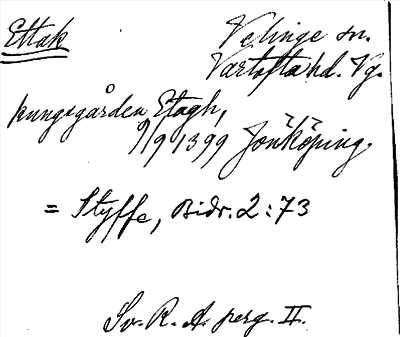 Ettak
Velinge sn.
Vartofta hd. Vg.
kungsgården Etagh,
9/9 1399 Jonköping.
= Styffe, Bidr. 2:73
Sv. R. A. perg. II.